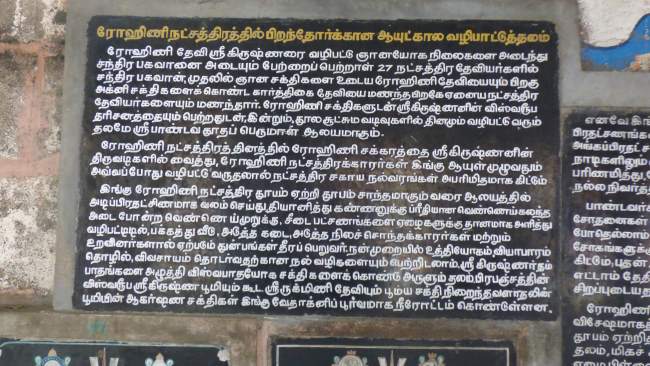 ரோஹிணி நட்சத்திரத்தில் பிறந்தோர்க்கான ஆயுட்கால வழிபாட்டுத்தலம்
ரோஹிணி தேவி ஸ்ரீ கிருஷ்ணரை வழிபட்டு ஞானயோக நிலைகளை அடைந்து
சந்திர பகவானை அடையும் பேற்றைப் பெற்றாள் 27 நட்சத்திர தேவியர்களில்
சந்திர பகவான், முதலில் ஞான சக்திகளை உடைய ரோஹிணி தேவியையும் பிறகு
அக்னி சக்திகளைக் கொண்ட கார்த்திகை தேவியை மணந்த பிறகே ஏனைய நட்சத்திர
தேவியர்களையும் மணந்தார். ரோஹிணி சக்திகளுடன் ஸ்ரீ கிருஷ்ணனின் விஸ்வரூப
தரிசனத்தையும் பெற்றதுடன், இன்றும், தூல சூட்சும வடிவுகளில் தினமும் வழிபட்டு வரும்
தலமே ஸ்ரீ பாண்டவ தூதப் பெருமாள் ஆலயமாகும்.
ரோஹிணி நட்சத்திரத்தினத்தில் ரோஹிணி சக்கரத்தை ஸ்ரீ கிருஷ்ணனின்
திருவடிகளில் வைத்து, ரோஹிணி நட்சத்திரக்காரர்கள் இங்கு ஆயுள் முழுவதும்
அவ்வப்போது வழிபட்டு வருதலால் நட்சத்திர சகாய நல்வரங்கள் அபரிமிதமாக கிட்டும்
இங்கு ரோஹிணி நட்சத்திர தூயம் ஏற்றி தூபம் சாந்தமாகும் வரை ஆலயத்தில்
அடிப்பிரதட்சிணமாக வலம் செய்து, தியானித்து கண்ணனுக்கு ப்ரீதியான வெண்ணெய் கலந்த
அடை போன்ற வெண்ணெய் முறுக்கு, சீடை பட்சணங்களை ஏழைகளுக்கு தானமாக அளித்து
வழிபட்டிட, பக்கத்து வீடு, அடுத்த கடை, அடுத்த நிலச் சொந்தக்காரர்கள் மற்றும்
உறவினர்களால் ஏற்படும் துன்பங்கள் தீரப் பெறுவர். நன்முறையில் உத்தியோகம், வியாபாரம்
தொழில், விவசாயம் தொடர்வதற்கான நல் வழிகளையும் பெற்றிடலாம். ஸ்ரீ கிருஷ்ணர் தம்
பாதங்களை அழுத்தி விஸ்வாதயோக சக்திகளைக் கொண்டு அருளும் தலம். பிரபஞ்சத்தின்
விஸ்வரூப ஸ்ரீ கிருஷ்ண பூமியும் கூட ஸ்ரீ ருக்மிணி தேவியும் பூம்ய சக்தி நிறைந்தவளாதலின்
பூமியின் ஆகர்ஷண சக்திகள் இங்கு வேதாக்னிப் பூர்வமாக நீரோட்டம் கொண்டுள்ளன.
எனவே இங்
பிரதட்சணங்
அங்கப்பிரதட்
நாடிகளிலும்
பரிணமித்து,
நல்ல நிவர்த்
பாண்டவர்
சோதனைகள்
போதெல்லாம்
சோகங்களுக்கு
எட்டாம் தேதி
சிறப்புடைய
ரோஹிணி
விசேஷமாகத்
தூபம் ஏற்றி
தலம், மிகச்